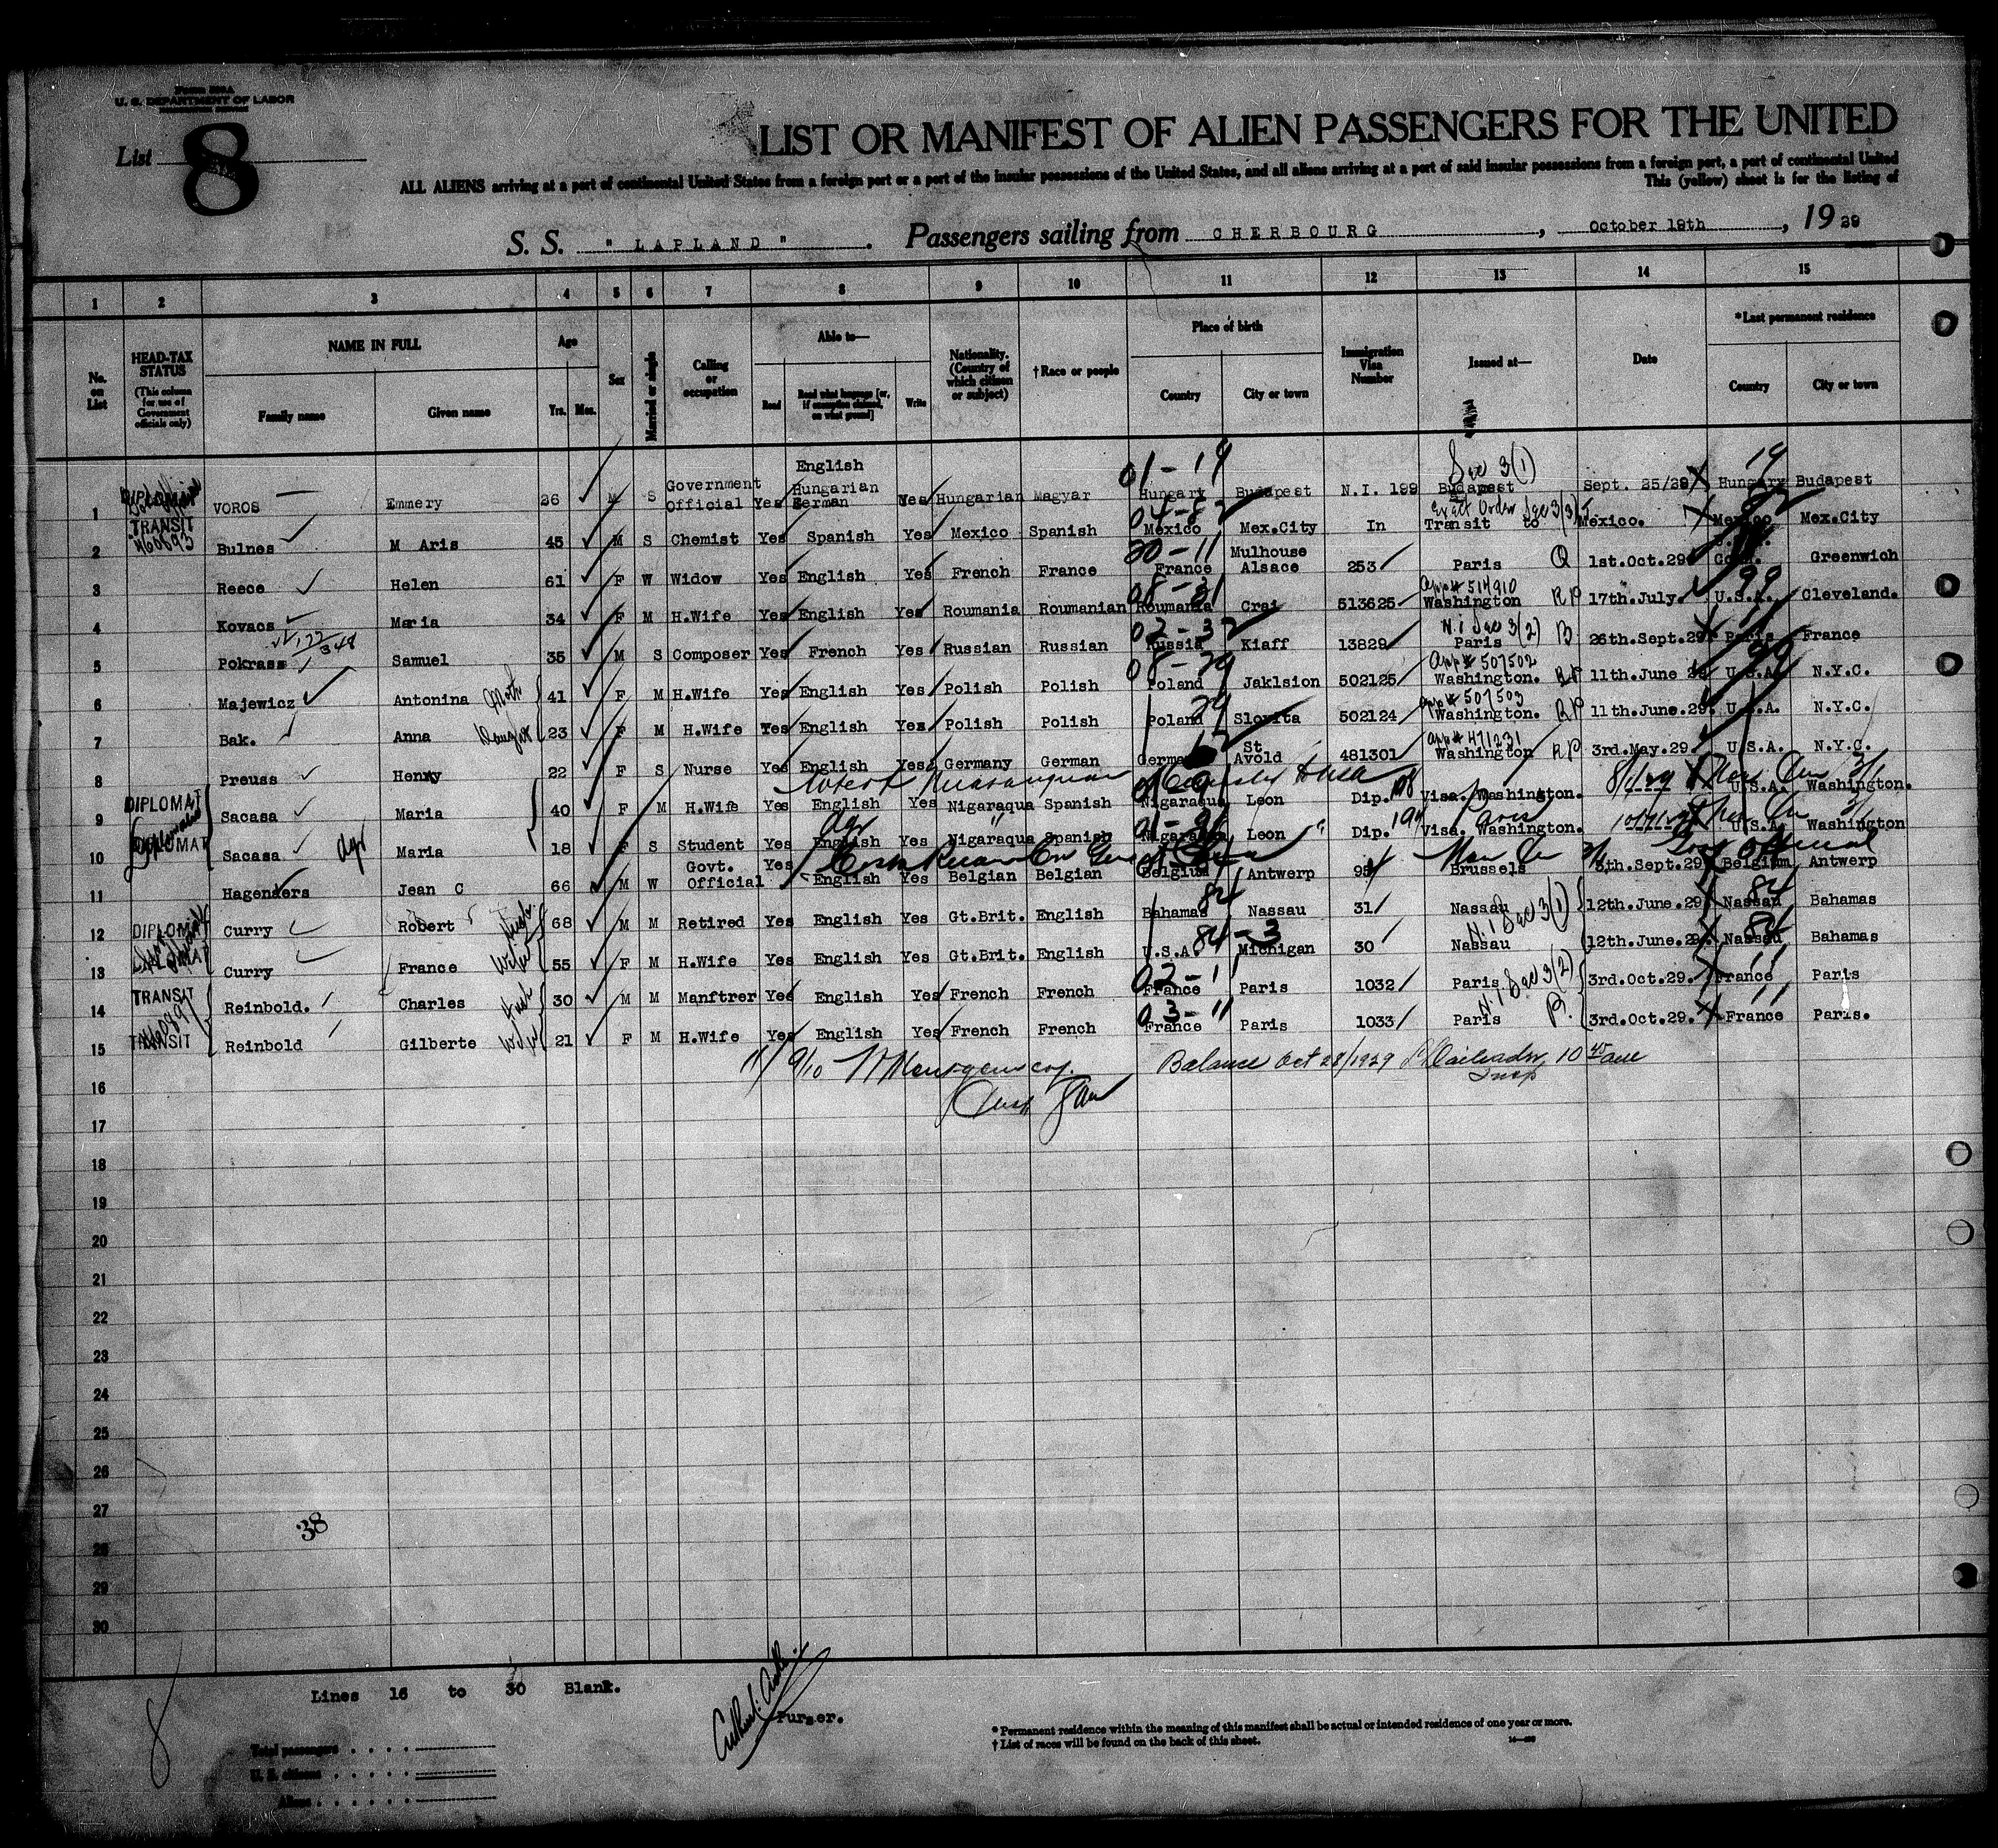 U. S. DEPARTMENT OF LABOR
List 8
LIST OR MANIFEST OF ALIEN PASSENGERS FOR THE UNITED
ALL ALIENS arriving at a port of continental United States from a foreign port or a port of the insular possessions of the United States, and all aliens arriving at a port of said insular possessions from a foreign port, a port of continental United
This (yellow) sheet is for the listing of
S. S. " LAPLAND " . Passengers sailing from CHERBOURG , October 19th , 19 29
1 2 3 4 5 6 7 8 9 10 11 12 13 14 15
No. on List
HEAD-TAX STATUS (This column for use of Government officials only)
NAME IN FULL Family name Given name
Age Yrs. Mos.
Sex
Married or single
Calling or occupation
Able to— Read Read what language [or, if exemption claimed, on what ground] Write
Nationality. (Country of which citizen or subject)
†Race or people
Place of birth Country City or town
Immigration Visa Number
Issued at—
Date
*Last permanent residence Country City or town
1 DIPLOMAT VOROS Emmery 26 M S Government Official Yes English Hungarian German Yes Hungarian Magyar 01-19 Hungary Budapest N.I. 199 Sec 3(1) Budapest Sept. 25/29 19 Hungary Budapest
2 TRANSIT 460893 Bulnes M Aris 45 M S Chemist Yes Spanish Yes Mexico Spanish Mexico Mex.City In Transit to Mexico. Mexico Mex.City
3 Reece Helen 61 F W Widow Yes English Yes French France 20-11 France Mulhouse Alsace 253 Paris Q 1st.Oct.29 Greenwich
4 Kovacs Maria 34 F M H.Wife Yes English Yes Roumania Roumanian 08-31 Roumania Crai 513625 App# 514910 Washington RP 17th.July. 99 U.S.A. Cleveland.
5 Pokrass Samuel 35 M S Composer Yes French Yes Russian Russian 02-32 Russia Kiaff 13829 N.I Sec 3(2) Paris B 26th.Sept.29 Paris France
6 Majewicz Antonina Moth 41 F M H.Wife Yes English Yes Polish Polish 08-29 Poland Jaklsion 502125 App# 507502 Washington. RP 11th.June 29 99 U.S.A. N.Y.C.
7 Bak. Anna Daught 23 F M H.Wife Yes English Yes Polish Polish 29 Poland Slovita 502124 App# 507503 Washington. RP 11th.June.29. U.S.A. N.Y.C.
8 Preuss Henny 22 F S Nurse Yes English Yes Germany German St Avold 481301 App# 471231 Washington RP 3rd.May.29. U.S.A. N.Y.C.
9 DIPLOMAT Sacasa Maria 40 F M H.Wife Yes English Yes Nigaraqua Spanish Nigaraqua Leon Dip. Visa. Washington. U.S.A. Washington.
10 DIPLOMAT Sacasa Maria 18 F S Student Yes English Yes Nigaraqua Spanish Nigaraqua Leon Dip. Visa. Paris Washington. U.S.A. Washington
11 Hagenders Jean C 66 M W Govt. Official Yes English Yes Belgian Belgian Belgium Antwerp Brussels 5th.Sept.29 Belgium Antwerp
12 DIPLOMAT Curry Robert Husb 68 M M Retired Yes English Yes Gt.Brit. English 84 Bahamas Nassau 31 Nassau N.I Sec 3(1) 12th.June.29 84 Nassau Bahamas
13 Curry France Wife 55 F M H.Wife Yes English Yes Gt.Brit. English 84-3 U.S.A. Michigan 30 Nassau 12th.June.29. 84 Nassau Bahamas
14 TRANSIT Reinbold. Charles Husb 30 M M Manftrer Yes English Yes French French 02-11 France Paris 1032 Paris N.I Sec 3(2) 3rd.Oct.29. 11 France Paris
15 TRANSIT Reinbold Gilberte Wife 21 F M H.Wife Yes English Yes French French 03-11 France Paris 1033 Paris B. 3rd.Oct.29. 11 France Paris.
16 Montgomery. Balance Oct 28/1929 Insp
17
18
19
20
21
22
23
24
25
26
27
38
28
29
30
Lines 16 to 30 Blank.
Purser.
8
Total passengers
U. S. citizens
Aliens
* Permanent residence within the meaning of this manifest shall be actual or intended residence of one year or more.
† List of races will be found on the back of this sheet.